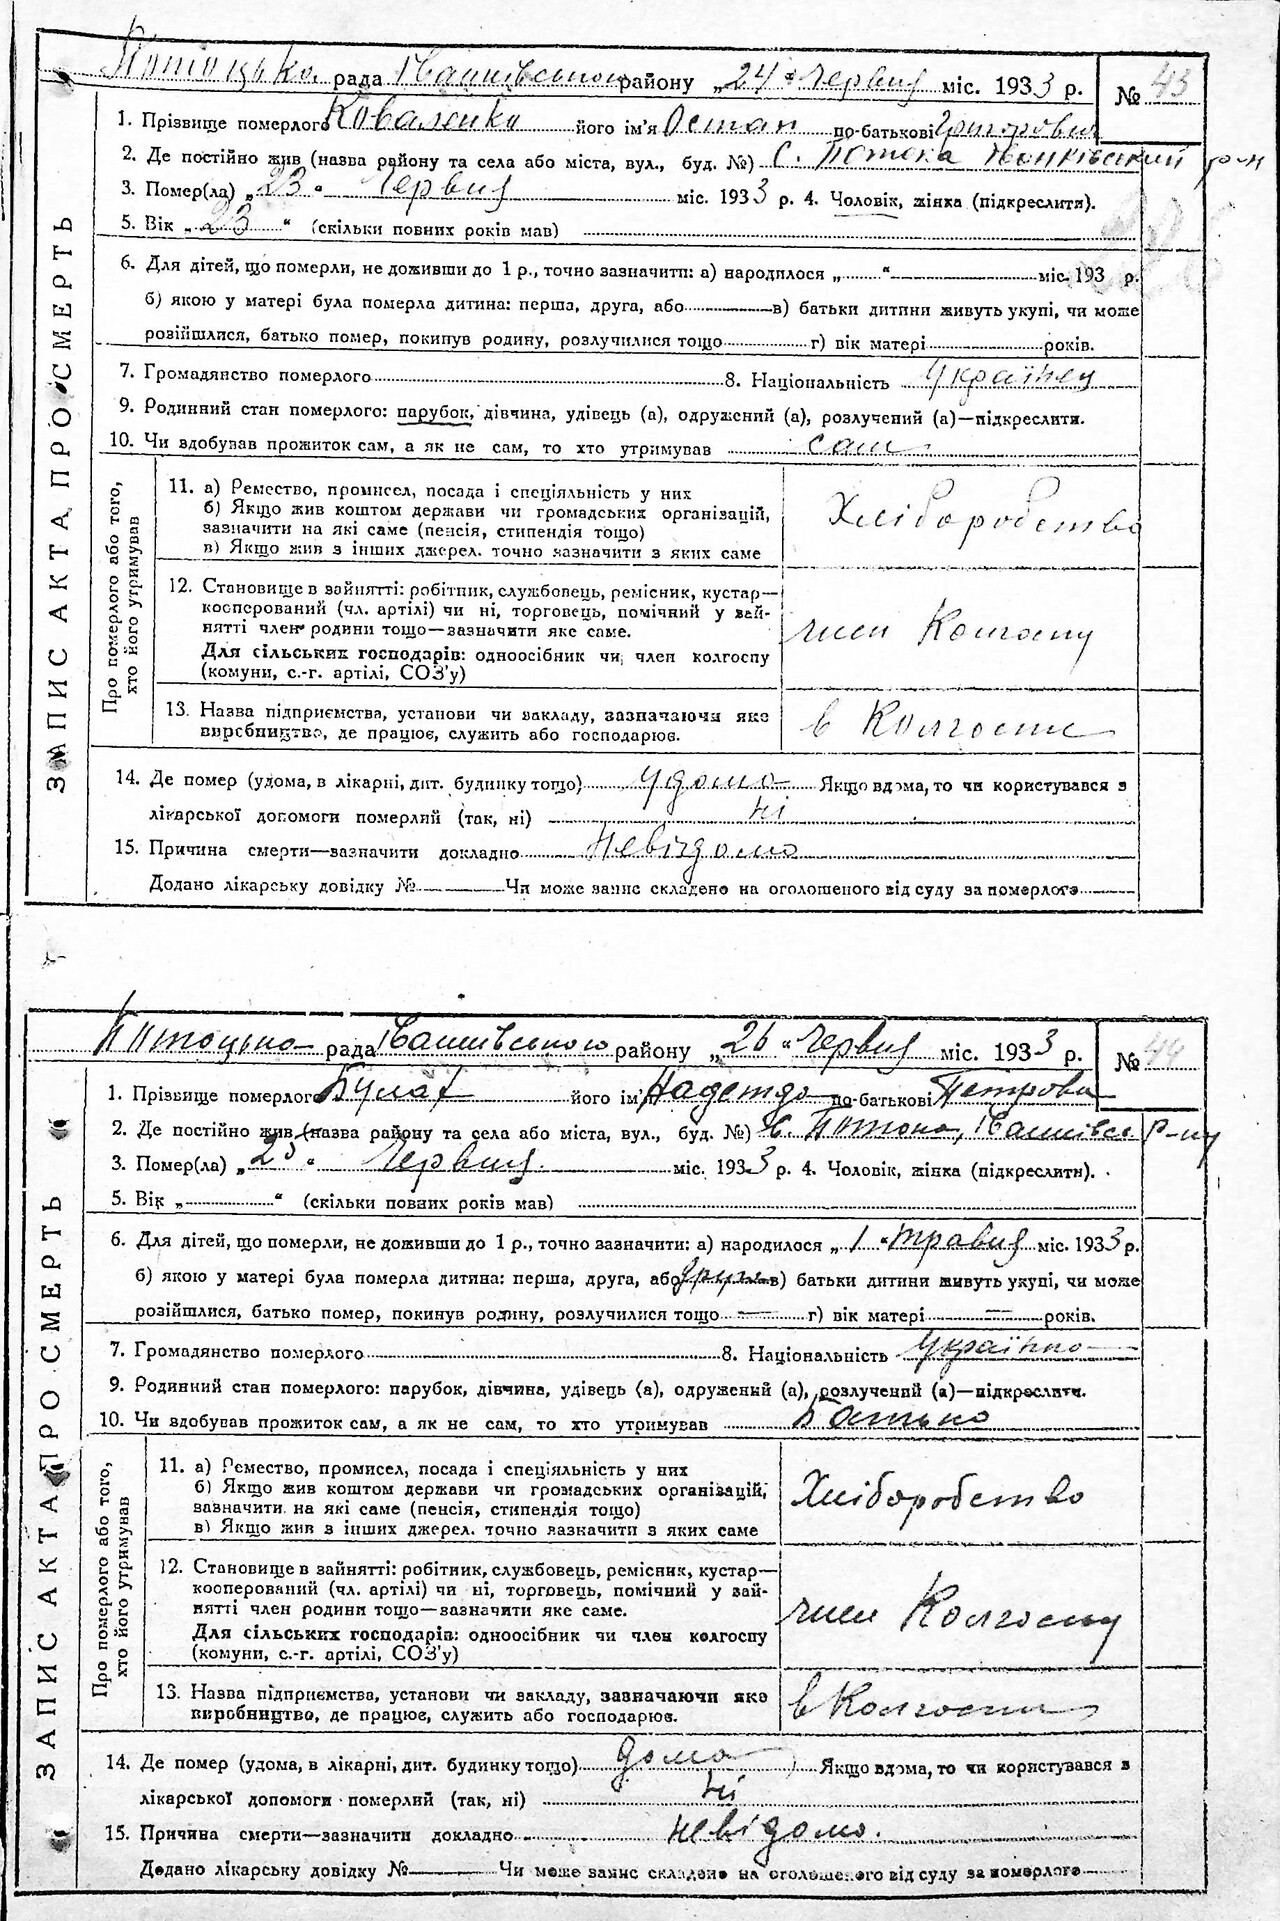 Потоцька рада Іванківського району „24“ Червня міс. 1933 р. № 43
1. Прізвище померлого Коваленко його ім'я Остап по-батькові Григорович
2. Де постійно жив (назва району та села або міста, вул., буд. №) с. Потока Іванківський р-н
3. Помер(ла) „23“ Червня міс. 1933 р. 4. Чоловік, жінка (підкреслити).
5. Вік „23“ (скільки повних років мав)
6. Для дітей, що померли, не доживши до 1 р., точно зазначити: а) народилося „ “ міс. 193 р.
б) якою у матері була померла дитина: перша, друга, або в) батьки дитини живуть укупі, чи може
розійшлися, батько помер, покинув родину, розлучилися тощо г) вік матері років.
7. Громадянство померлого 8. Національність Українец
9. Родинний стан померлого: парубок, дівчина, удівець (а), одружений (а), розлучений (а)—підкреслити.
10. Чи здобував прожиток сам, а як не сам, то хто утримував сам
ЗАПИС АКТА ПРО СМЕРТЬ
Про померлого або того,
хто його утримував
11. а) Ремество, промисел, посада і спеціяльність у них
б) Якщо жив коштом держави чи громадських організацій,
зазначити на які саме (пенсія, стипендія тощо)
в) Якщо жив з інших джерел. точно зазначити з яких саме
Хліборобство
12. Становище в зайнятті: робітник, службовець, ремісник, кустар—
кооперований (чл. артілі) чи ні, торговець, помічний у зай-
нятті член родини тощо—зазначити яке саме.
Для сільських господарів: одноосібник чи член колгоспу
(комуни, с.-г. артілі, СОЗ'у)
член Колгоспу
13. Назва підприємства, установи чи закладу, зазначаючи яке
виробництво, де працює, служить або господарює.
в Колгоспі
14. Де помер (удома, в лікарні, дит. будинку тощо) удома Якщо вдома, то чи користувався з
лікарської допомоги померлий (так, ні) ні
15. Причина смерти—зазначити докладно Невідомо
Додано лікарську довідку № Чи може запис складено на оголошеного від суду за померлого
Потоцька рада Іванківського району „26“ Червня міс. 1933 р. № 44
1. Прізвище померлого Булах його ім'я Надежда по-батькові Петровна
2. Де постійно жив (назва району та села або міста, вул., буд. №) с. Потока, Іванківсь р-ну
3. Помер(ла) „25“ Червня міс. 1933 р. 4. Чоловік, жінка (підкреслити).
5. Вік „ “ (скільки повних років мав)
6. Для дітей, що померли, не доживши до 1 р., точно зазначити: а) народилося „1“ травня міс. 1933 р.
б) якою у матері була померла дитина: перша, друга, або друга в) батьки дитини живуть укупі, чи може
розійшлися, батько помер, покинув родину, розлучилися тощо г) вік матері років.
7. Громадянство померлого 8. Національність Українка
9. Родинний стан померлого: парубок, дівчина, удівець (а), одружений (а), розлучений (а)—підкреслити.
10. Чи здобував прожиток сам, а як не сам, то хто утримував Батько
ЗАПИС АКТА ПРО СМЕРТЬ
Про померлого або того,
хто його утримував
11. а) Ремество, промисел, посада і спеціяльність у них
б) Якщо жив коштом держави чи громадських організацій,
зазначити на які саме (пенсія, стипендія тощо)
в) Якщо жив з інших джерел. точно зазначити з яких саме
Хліборобство
12. Становище в зайнятті: робітник, службовець, ремісник, кустар—
кооперований (чл. артілі) чи ні, торговець, помічний у зай-
нятті член родини тощо—зазначити яке саме.
Для сільських господарів: одноосібник чи член колгоспу
(комуни, с.-г. артілі, СОЗ'у)
член Колгоспу
13. Назва підприємства, установи чи закладу, зазначаючи яке
виробництво, де працює, служить або господарює.
в Колгоспі
14. Де помер (удома, в лікарні, дит. будинку тощо) дома Якщо вдома, то чи користувався з
лікарської допомоги померлий (так, ні) ні
15. Причина смерти—зазначити докладно невідомо.
Додано лікарську довідку № Чи може запис складено на оголошеного від суду за померлого